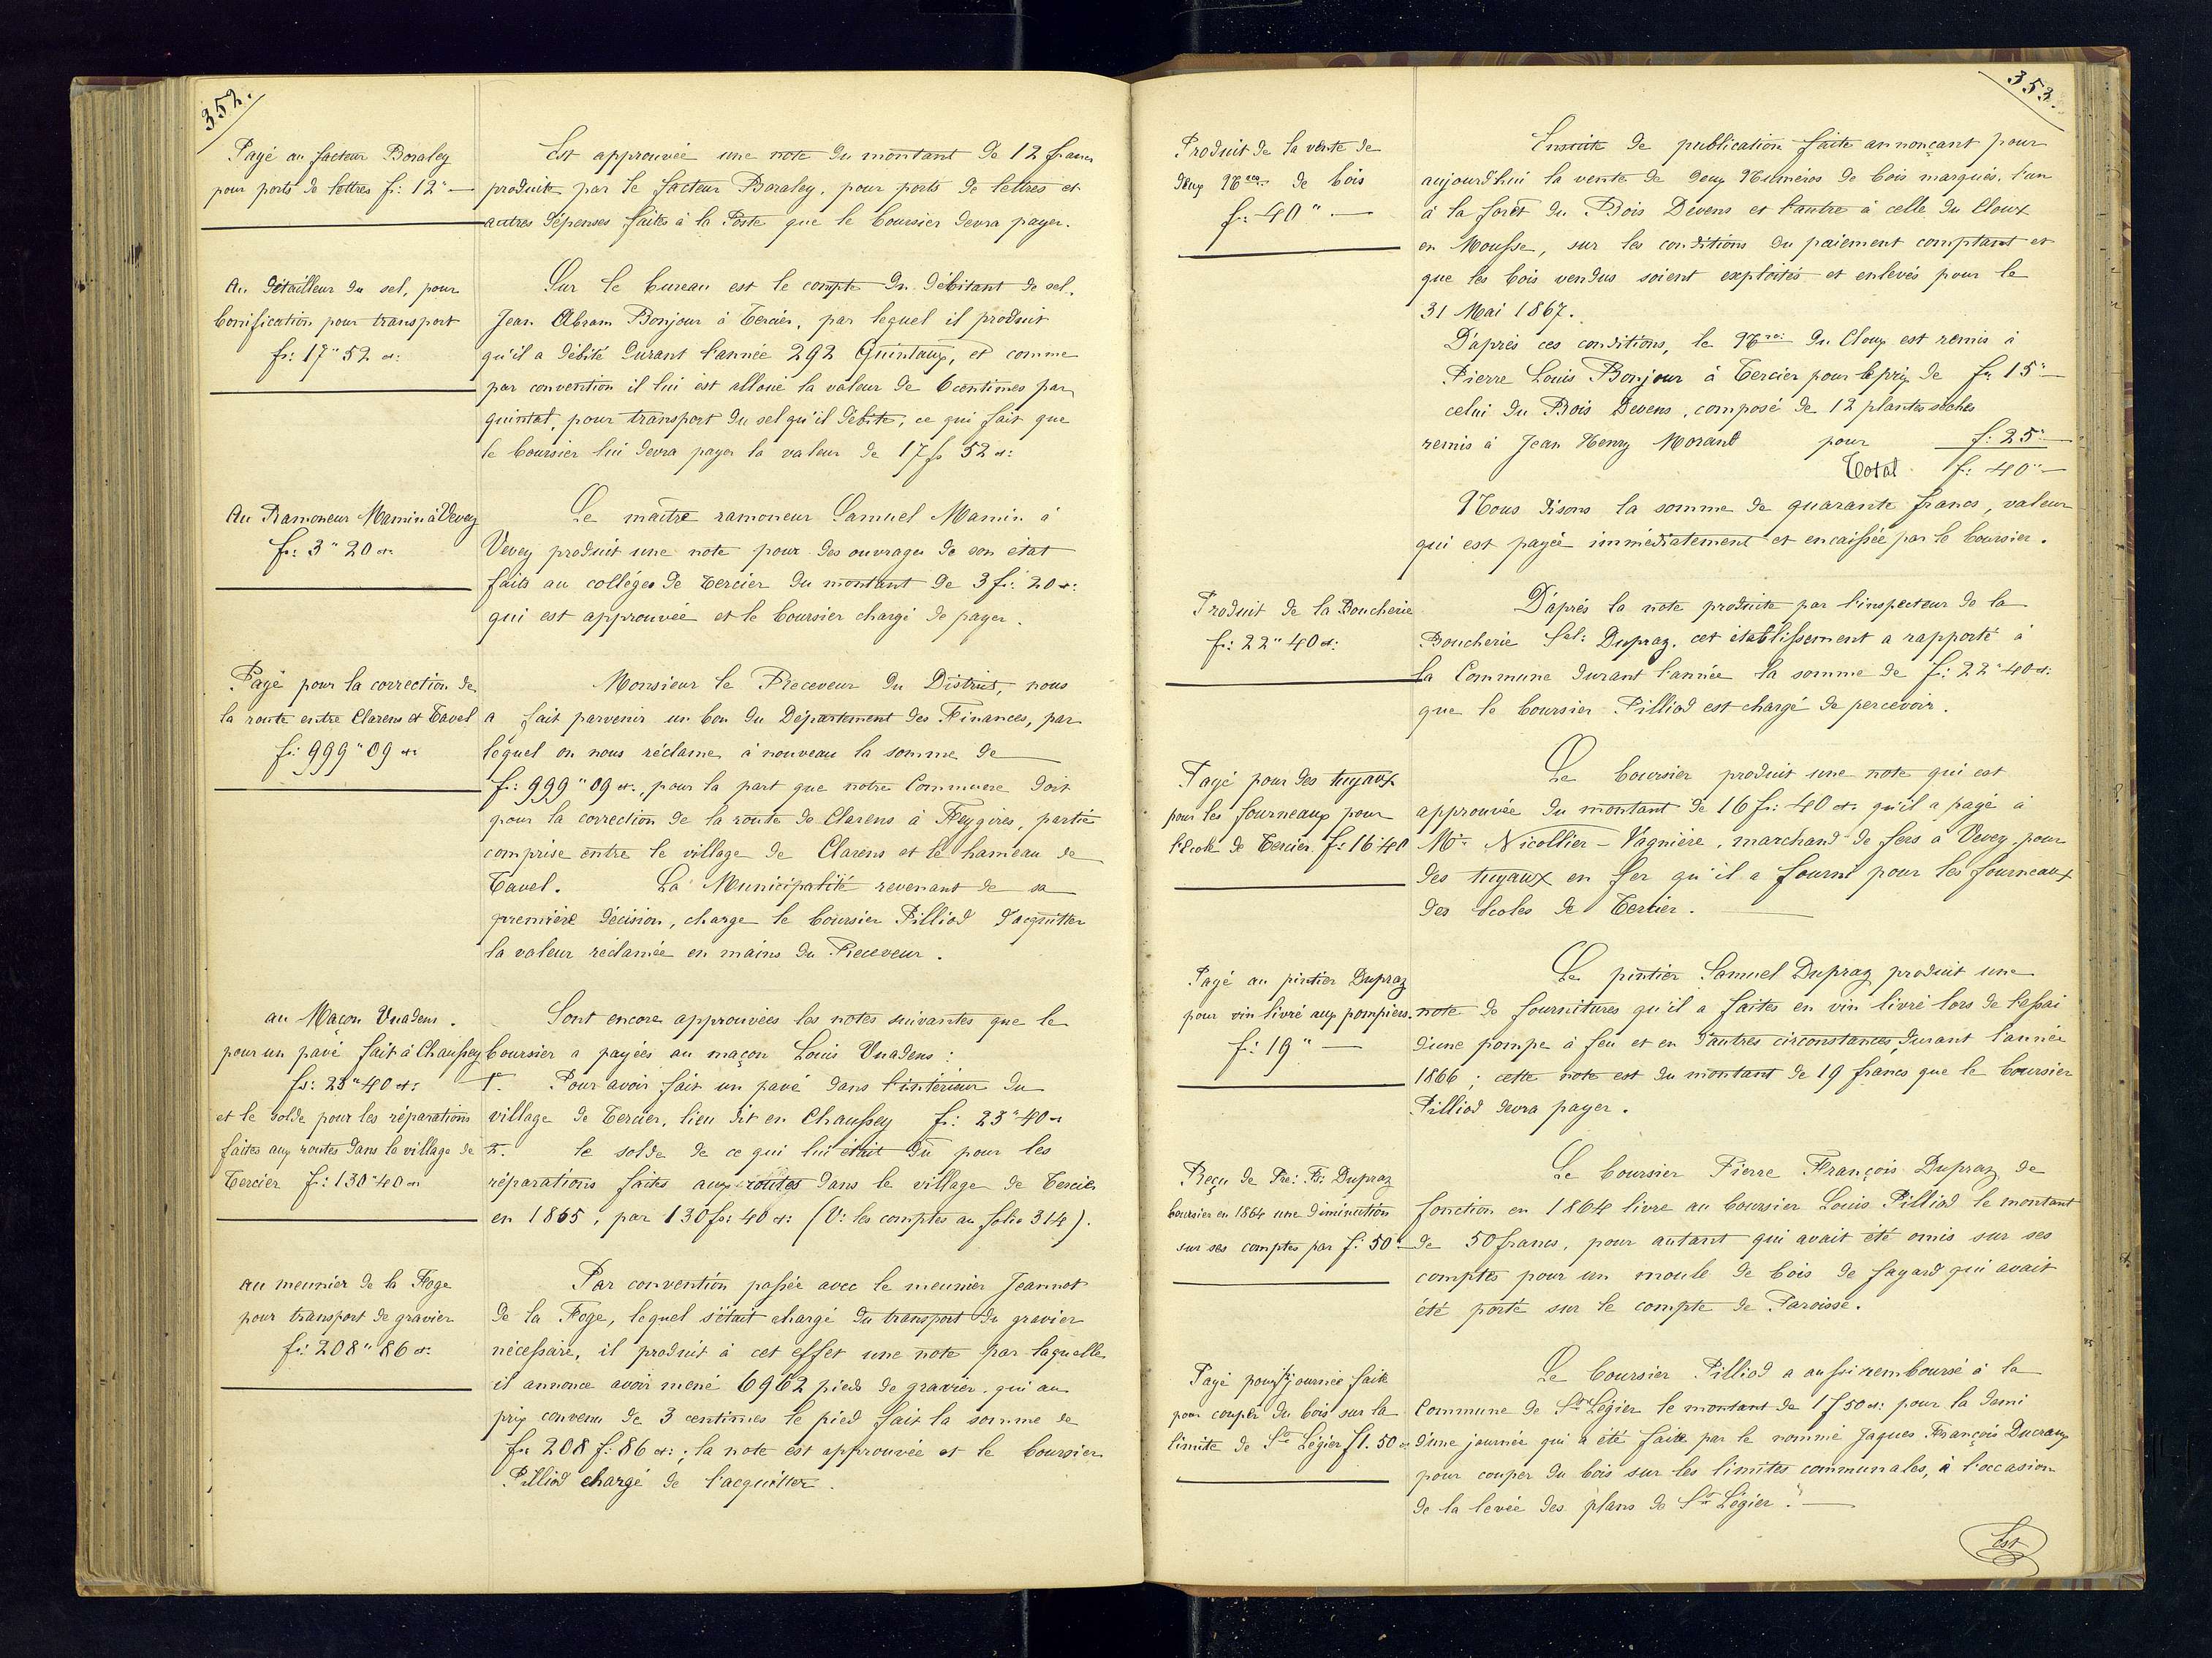 352.
Payé au facteur Boraley
pour ports de lettres fr: 12"—
Est approuvée une note du montant de 12 francs
produite par le facteur Boraley, pour ports de lettres et
autres dépenses faites à la Poste que le boursier devra payer.
Au détailleur du sel, pour
bonification pour transport
fr: 17"52 ct:
Sur le bureau est le compte du débitant de sel,
Jean Abram Bonjour à Tercier, par lequel il produit
qu'il a débité durant l'année 292 Quintaux, et comme
par convention il lui est alloué la valeur de 6 centimes par
quintal, pour transport du sel qu'il débite, ce qui fait que
le boursier lui devra payer la valeur de 17 fr 52 ct:
Au Ramoneur Mamin à Vevey
fr: 3"20 ct:
Le maître ramoneur Samuel Mamin à
Vevey produit une note pour des ouvrages de son état
faits au collèges de Tercier du montant de 3 fr: 20 ct:
qui est approuvée et le boursier chargé de payer.
Payé pour la correction de
la route entre Clarens et Tavel
fr: 999"09 ct:
Monsieur le Receveur du District, nous
a fait parvenir un bon du Département des Finances, par
lequel on nous réclame à nouveau la somme de
fr: 999"09 ct:, pour la part que notre Commune doit
pour la correction de la route de Clarens à Feygires, partie
comprise entre le village de Clarens et le hameau de
Tavel. La Municipalité revenant de sa
première décision, charge le boursier Pilliod d'acquitter
la valeur réclamée en mains du Receveur.
au Maçon Vuadens.
pour un pavé fait à Chaussey
fr: 23"40 ct:
et le solde pour les réparations
faites aux routes dans le village de
Tercier fr: 130"40 ct
Sont encore approuvées les notes suivantes que le
boursier a payées au maçon Louis Vuadens:
1°. Pour avoir fait un pavé dans l'intérieur du
village de Tercier, lieu dit en Chaussey fr: 23"40 ct
2°. le solde de ce qui lui était dû pour les
réparations faites aux routes dans le village de Tercier
en 1865, par 130 fr: 40 ct: (V: les comptes au folio 314).
au meunier de la Foge
pour transport de gravier
fr: 208"86 ct:
Par convention passée avec le meunier Jeannot
de la Foge, lequel s'était chargé du transport du gravier
nécessaire, il produit à cet effet une note par laquelle
il annonce avoir mené 6962 pieds de gravier, qui au
prix convenu de 3 centimes le pied fait la somme de
fr 208 f: 86 ct:; la note est approuvée et le boursier
Pilliod chargé de l'acquitter.
353.
Produit de la vente de
deux Nos de bois
fr: 40"—
Ensuite de publication faite annonçant pour
aujourd'hui la vente de deux Numéros de bois marqués, l'un
à la forêt du Bois Devens et l'autre à celle du Cloux
en Mousse, sur les conditions du paiement comptant et
que les bois vendus soient exploités et enlevés pour le
31 Mai 1867.
D'après ces conditions, le No: du Cloux est remis à
Pierre Louis Bonjour à Tercier pour le prix de fr 15"—
celui du Bois Devens, composé de 12 plantes sèches
remis à Jean Henry Morand pour f: 25"—
Total f: 40"—
Nous disons la somme de quarante francs, valeur
qui est payée immédiatement et encaissée par le boursier.
Produit de la Boucherie
fr: 22"40 ct:
D'après la note produite par l'inspecteur de la
Boucherie Sel: Dupraz, cet établissement a rapporté à
la Commune durant l'année la somme de f: 22"40 ct:
que le boursier Pilliod est chargé de percevoir.
Payé pour des tuyaux
pour les fourneaux pour
l'Ecole de Tercier fr: 16"40
Le boursier produit une note qui est
approuvée du montant de 16 fr: 40 ct: qu'il a payé à
Mr Nicollier-Vagnière, marchand de fers à Vevey pour
des tuyaux en fer qu'il a fourni pour les fourneaux
des écoles de Tercier.
Payé au pintier Dupraz
pour vin livré aux pompiers.
fr: 19"—
Le pintier Samuel Dupraz produit une
note de fournitures qu'il a faites en vin livré lors de l'essai
d'une pompe à feu et en d'autres circonstances, durant l'année
1866; cette note est du montant de 19 francs que le boursier
Pilliod devra payer.
Reçu de Pre: Fs: Dupraz
boursier en 1864 une diminution
sur ses comptes par f: 50"—
Le boursier Pierre François Dupraz de
fonction en 1864 livre au boursier Louis Pilliod le montant
de 50 francs, pour autant qui avait été omis sur ses
comptes pour un moule de bois de fayard qui avait
été porté sur le compte de Paroisse.
Payé pour ½ journée faite
pour couper du bois sur la
limite de St Légier f 1.50 ct
Le boursier Pilliod a aussi remboursé à la
Commune de St Légier le montant de 1 f 50 ct: pour la demi
d'une journée qui a été faite par le nommé Jaques François Ducraux
pour couper du bois sur les limites communales, à l'occasion
de la levée des plans de St Légier."—
Est